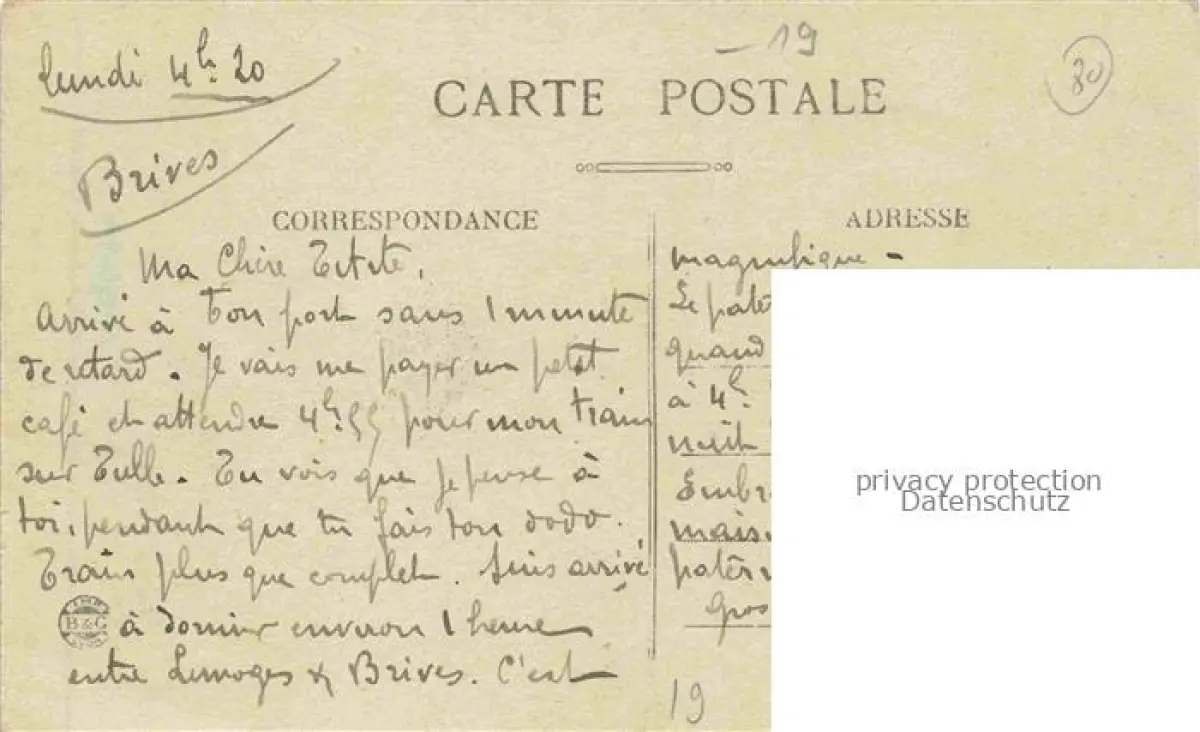 lundi 4h 20
Brives
- 19
80
CARTE POSTALE
CORRESPONDANCE
ADRESSE
Ma Chère Titite,
Arrivé à bon port sans 1 minute
de retard. Je vais me payer un petit
café et attendre 4h55 pour mon train
sur Tulle. Tu vois que je pense à
toi, pendant que tu fais ton dodo.
Train plus que complet. Suis arrivé
B&G
à dormir environ 1 heure
entre Limoges & Brives. C'est
magnifique -
Le
quand
à 4h
nuit
mais
Gros
19
privacy protection
Datenschutz